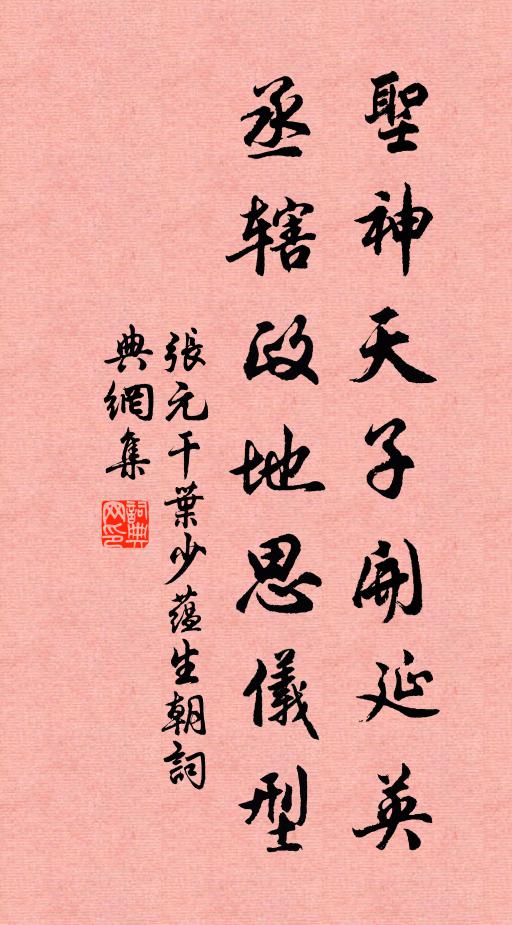 聖神天子開延英
丞辖政地思儀型
張元干葉少蘊生朝詞
典網集
詞典網印